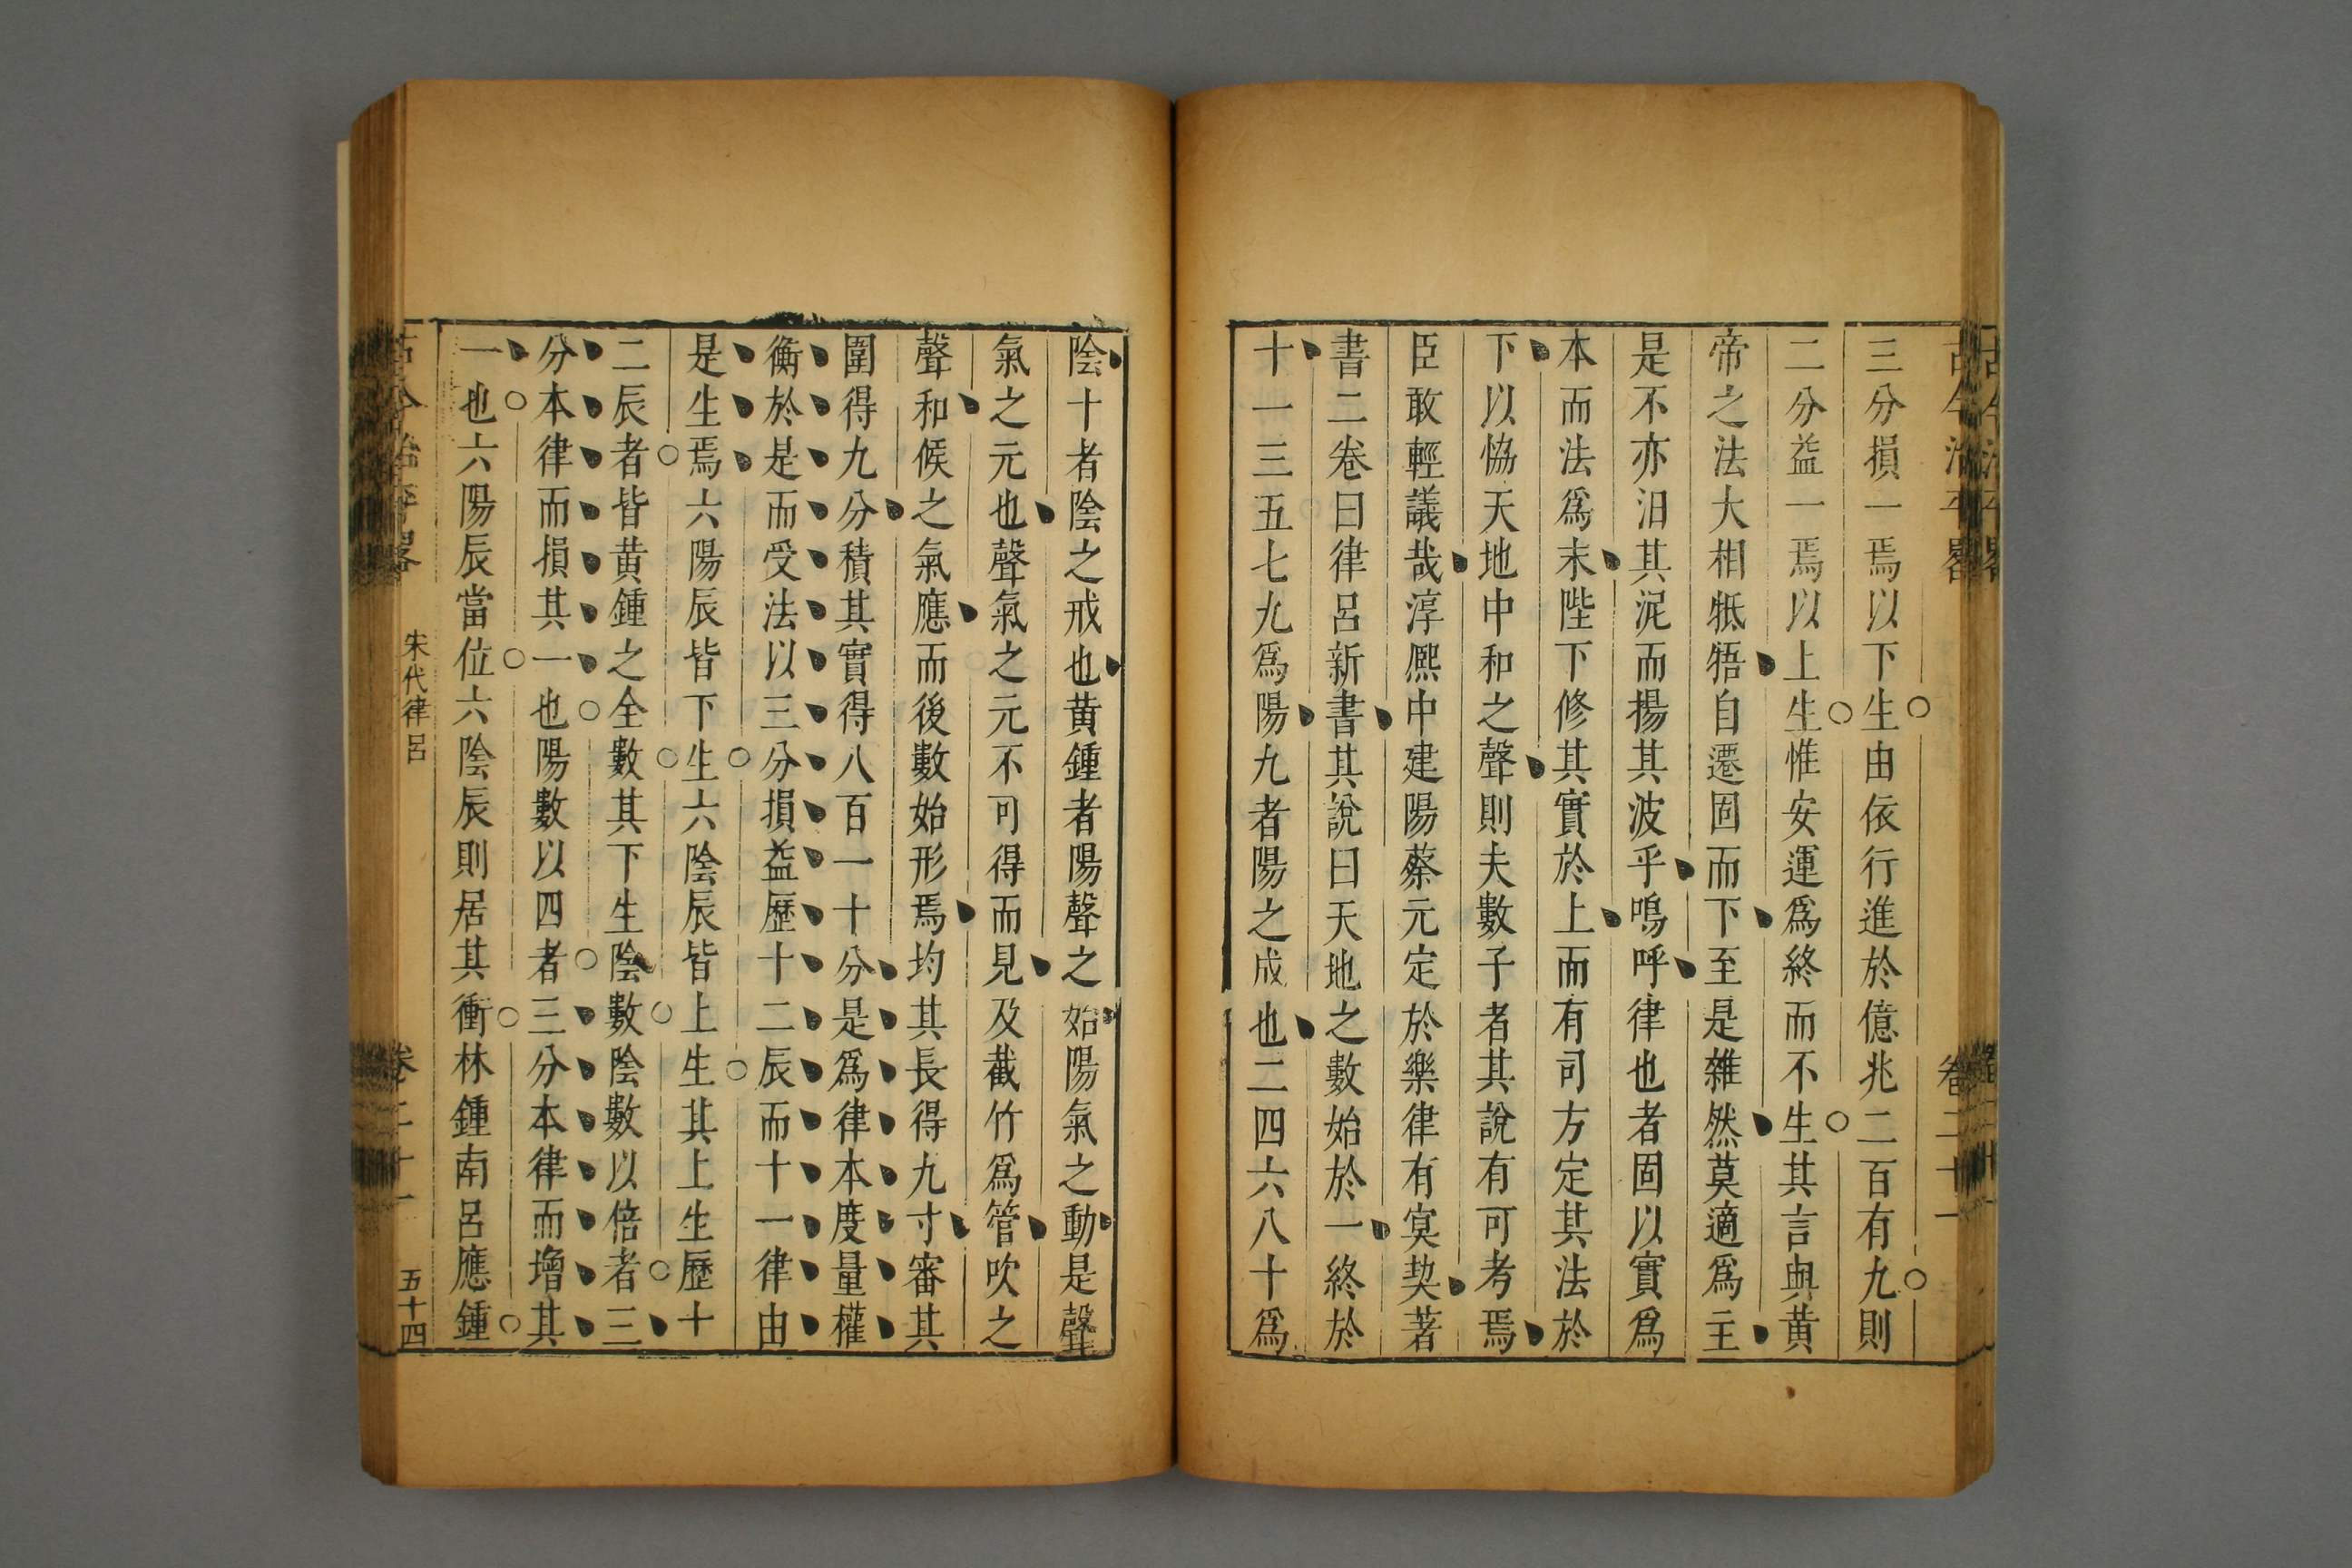 古今治平畧 卷二十一
三分損一焉以下生由依行進於億兆二百有九則
二分益一焉以上生惟安運爲終而不生其言與黄
帝之法大相牴牾自遷固而下至是雜然莫適爲主
是不亦汨其泥而揚其波乎嗚呼律也者固以實爲
本而法爲末陛下修其實於上而有司方定其法於
下以恊天地中和之聲則夫數子者其說有可考焉
臣敢輕議哉淳熈中建陽蔡元定於樂律有㝠契著
書二卷曰律呂新書其說曰天地之數始於一終於
十一三五七九爲陽九者陽之成也二四六八十爲
陰十者陰之成也黄鍾者陽聲之始陽氣之動是聲
氣之元也聲氣之元不可得而見及截竹爲管吹之
聲和候之氣應而後數始形焉均其長得九寸審其
圍得九分積其實得八百一十分是爲律本度量權
衡於是而受法以三分損益歷十二辰而十一律由
是生焉六陽辰皆下生六陰辰皆上生其上生歷十
二辰者皆黄鍾之全數其下生陰數陰數以倍者三
分本律而損其一也陽數以四者三分本律而增其
一也六陽辰當位六陰辰則居其衝林鍾南呂應鍾
古今治平畧 宋代律呂 卷二十一 五十四